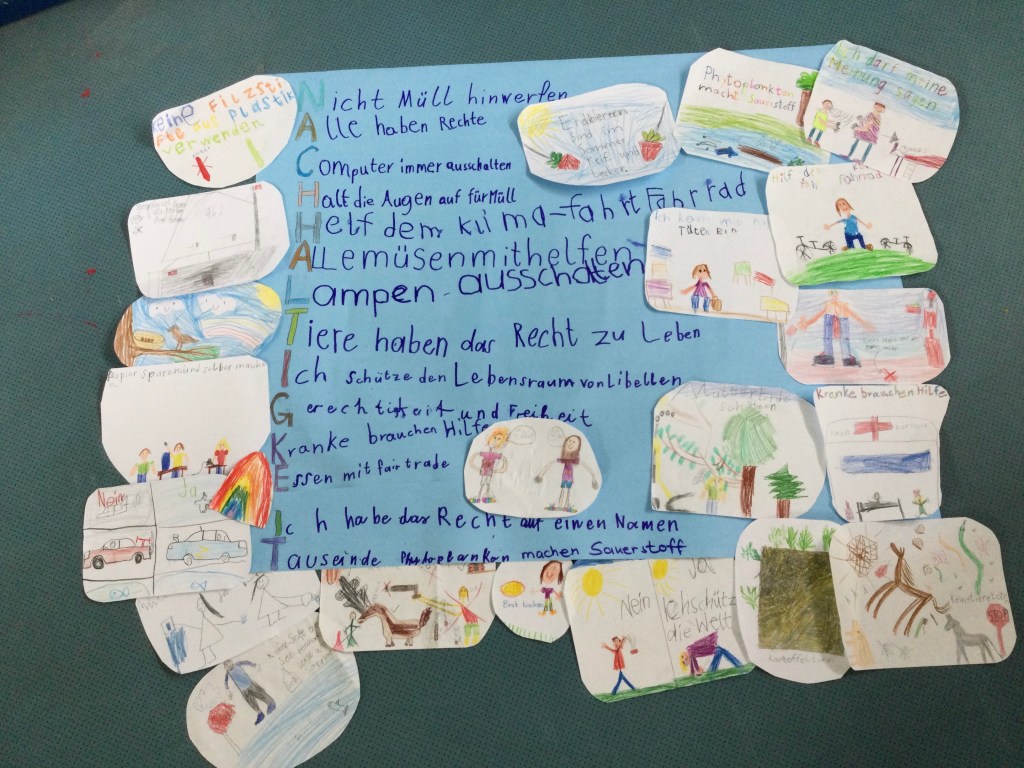 Nicht Müll hinwerfen
Alle haben Rechte
Computer immer ausschalten
Halt die Augen auf für Müll
Helf dem klima-fahrt Fahrrad
ALLemüsenmithelfen
Lampen-ausschalten
Tiere haben das Recht zu Leben
Ich schütze den Lebensraum von Libellen
Gerechtigkeit und Freiheit
Kranke brauchen Hilfe
Essen mit fairtrade
Ich habe das Recht auf einen Namen
Tauseinde Phytoplankon machen Sauerstoff
keine Filzsti
fte aus Plastik
verwenden
Erdbeeren
sind im
Sommer
reif und
lecker.
Phytoplankton
macht Sauerstoff
Ich darf meine
Meinung sagen
Hilf
Fahrrad
Tüten ein
Papier Sparen und selber machen
Nein
Ja
Kranke brauchen Hilfe
Brot backen
Nein
Ja
Ich schütz
die Welt